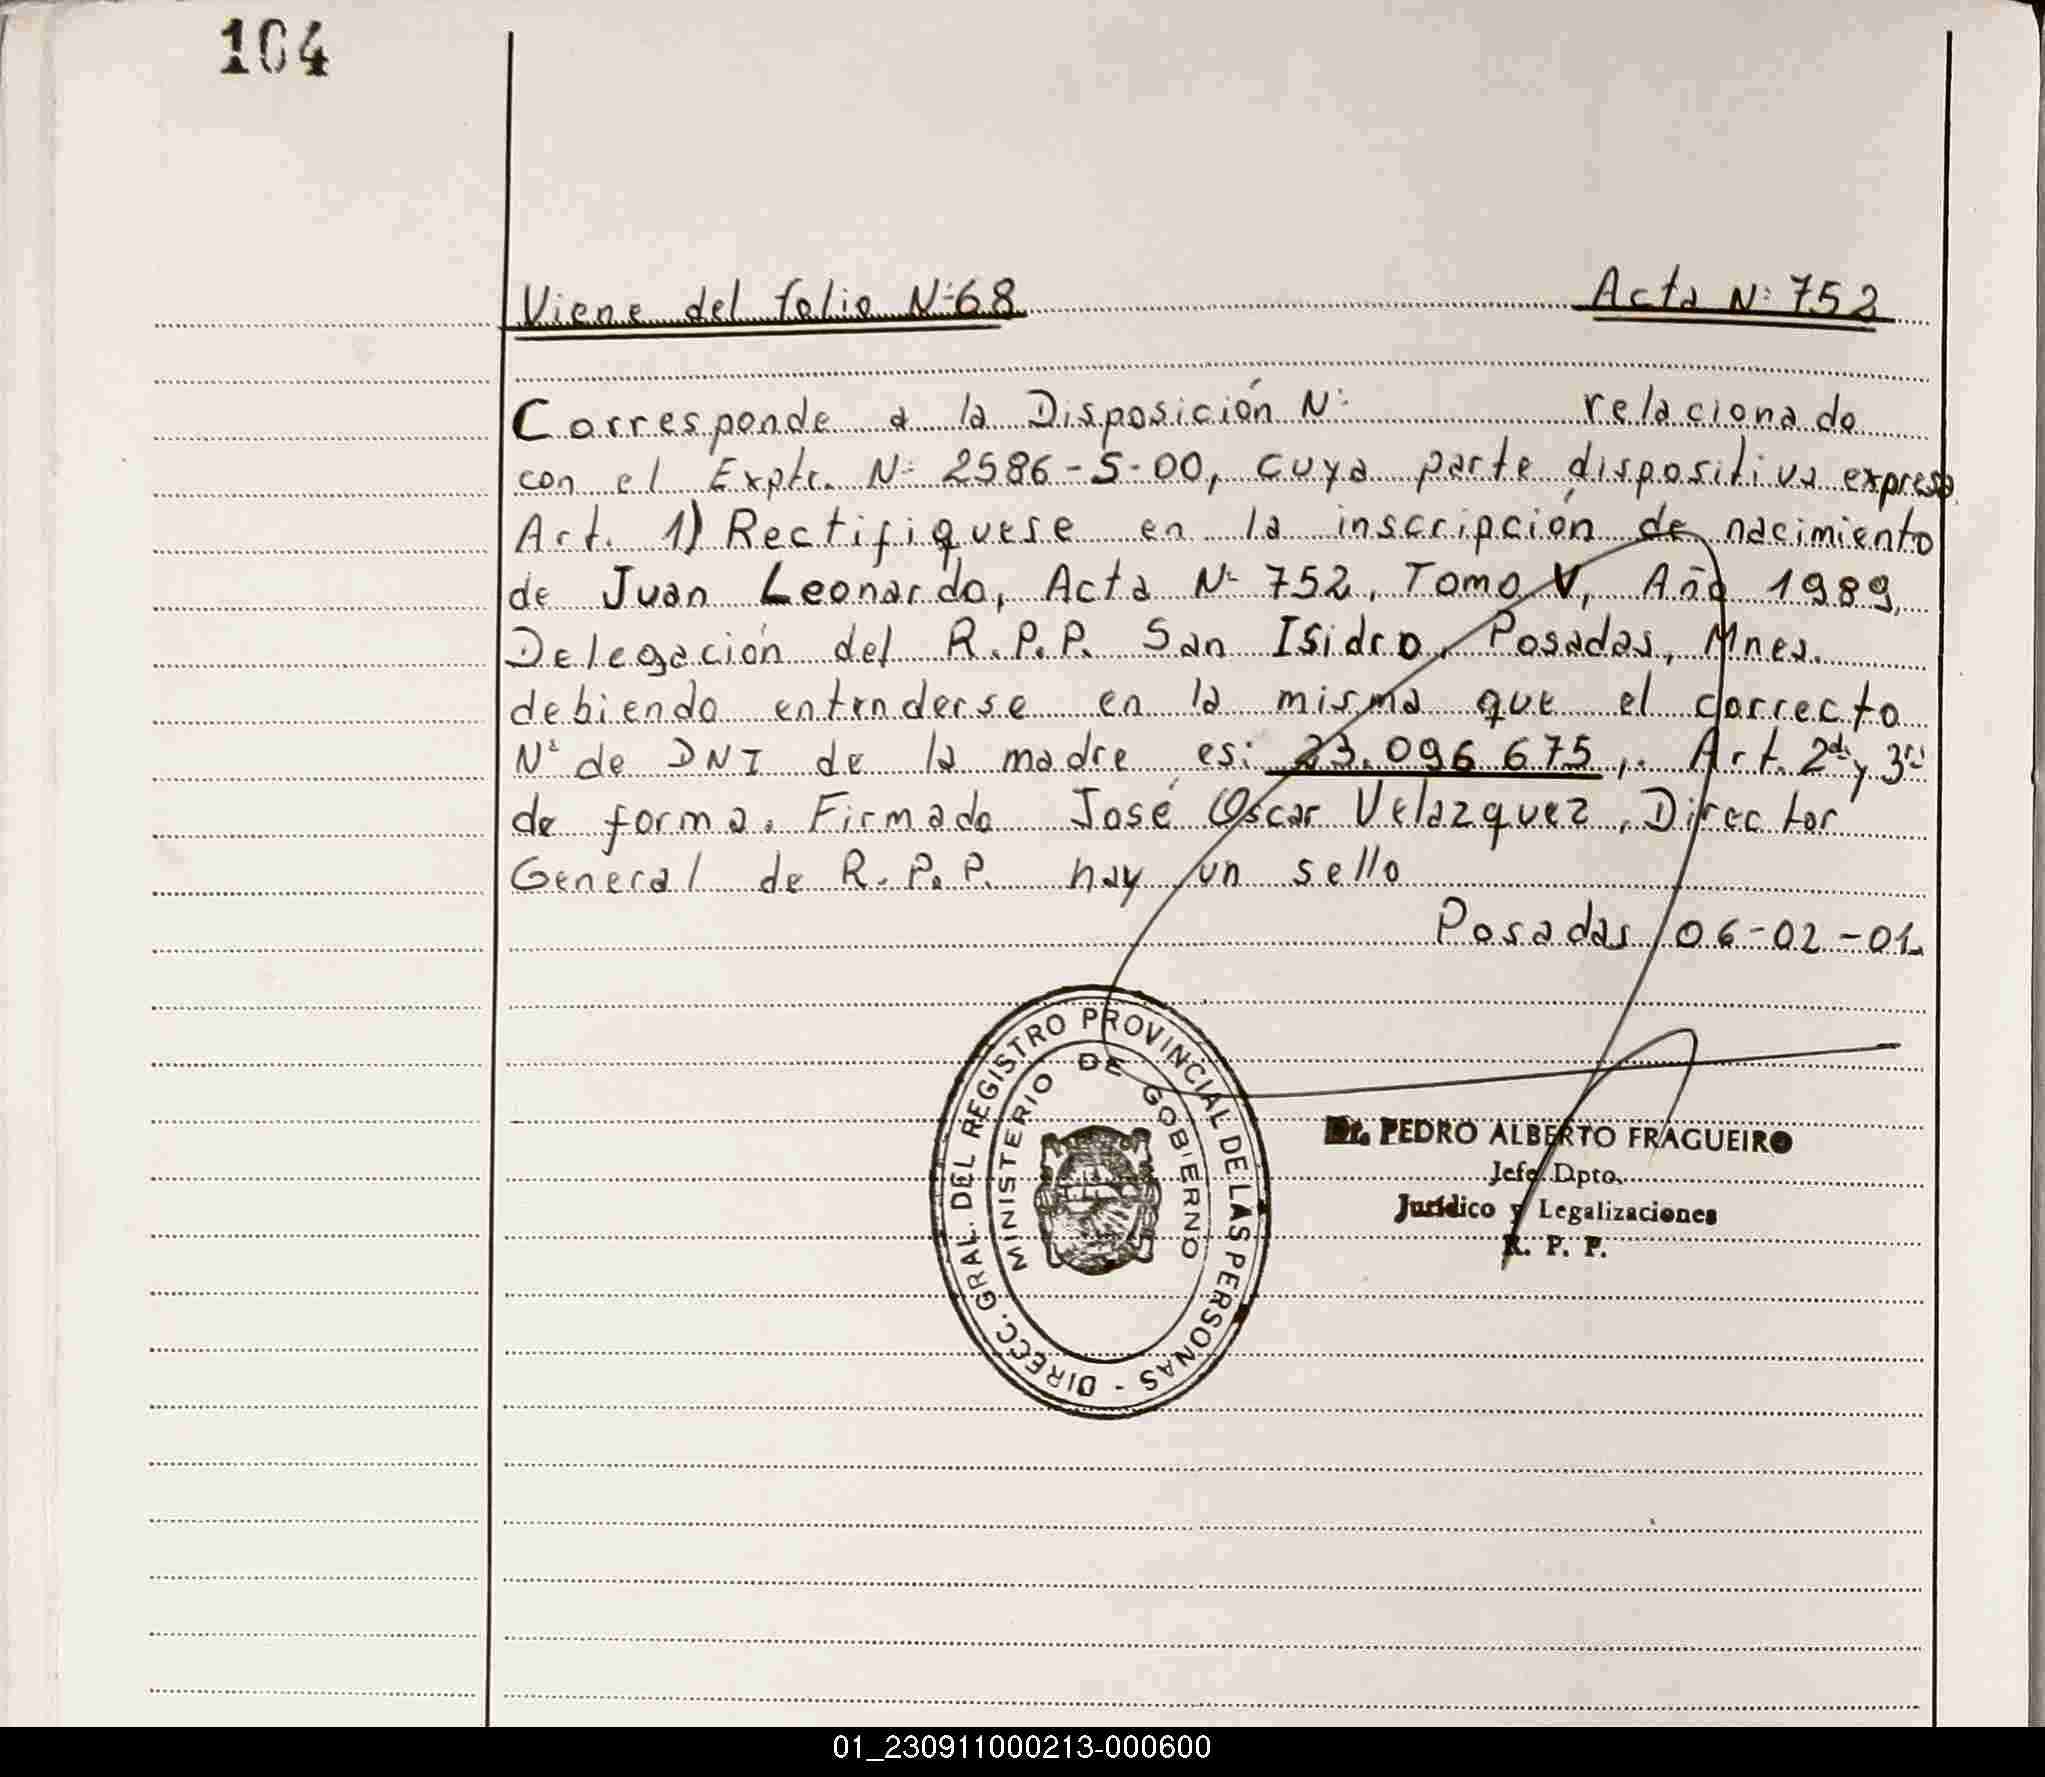 104
Viene del folio Nº 68 Acta Nº 752
Corresponde a la Disposición Nº relacionado
con el Expte. Nº 2586-S-00, cuya parte dispositiva expresa
Art. 1) Rectifíquese en la inscripción de nacimiento
de Juan Leonardo, Acta Nº 752, Tomo V, Año 1989,
Delegación del R.P.P. San Isidro, Posadas, Mnes.
debiendo entenderse en la misma que el correcto
Nº de DNI de la madre es: 23.096.675,. Art. 2do y 3ro
de forma. Firmado José Oscar Velazquez, Director
General de R.P.P. hay un sello
Posadas 06-02-01.
DIRECC. GRAL. DEL REGISTRO PROVINCIAL DE LAS PERSONAS -
MINISTERIO DE GOBIERNO
Dr. PEDRO ALBERTO FRAGUEIRO
Jefe Dpto.
Jurídico y Legalizaciones
R. P. P.
01_230911000213-000600